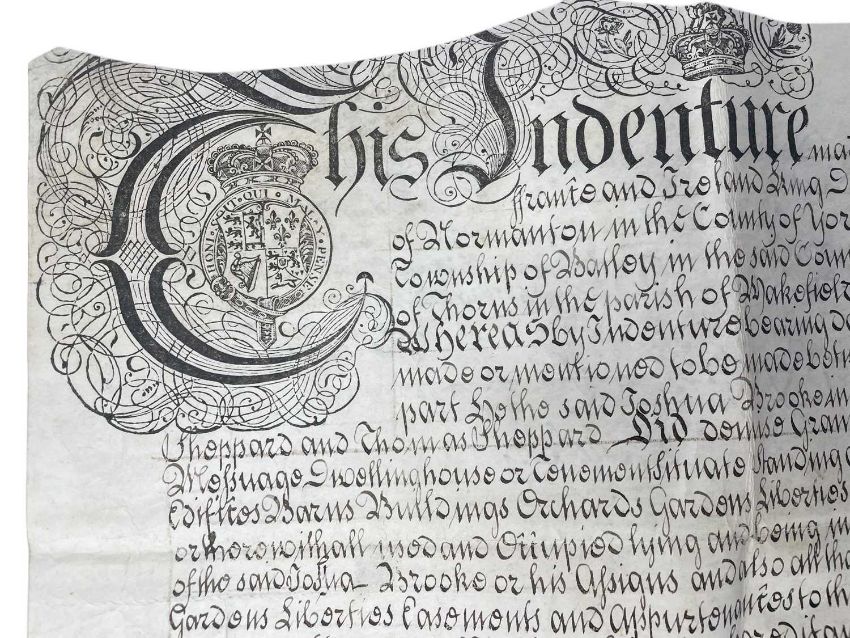 This Indenture mad
ffrance and Ireland King D
of Normanton in the County of Yor
Township of Batley in the said Coun
of Thorns in the parish of Wakefield
Whereas by Indenture bearing da
made or mentioned to be made betw
part Hethe said Joshua Brooke in
Sheppard and Thomas Sheppard Did demise Gran
Messuage Dwellinghouse or Tenement Situate Standing
Edifices Barns Buildings Orchards Gardens Liberties
or therewithall used and Occupied lying and being in
of the said Joshua Brooke or his Assigns and also all tha
Gardens Liberties Easements and Appurtenances to th
HONI SOIT QUI MAL Y PENSE